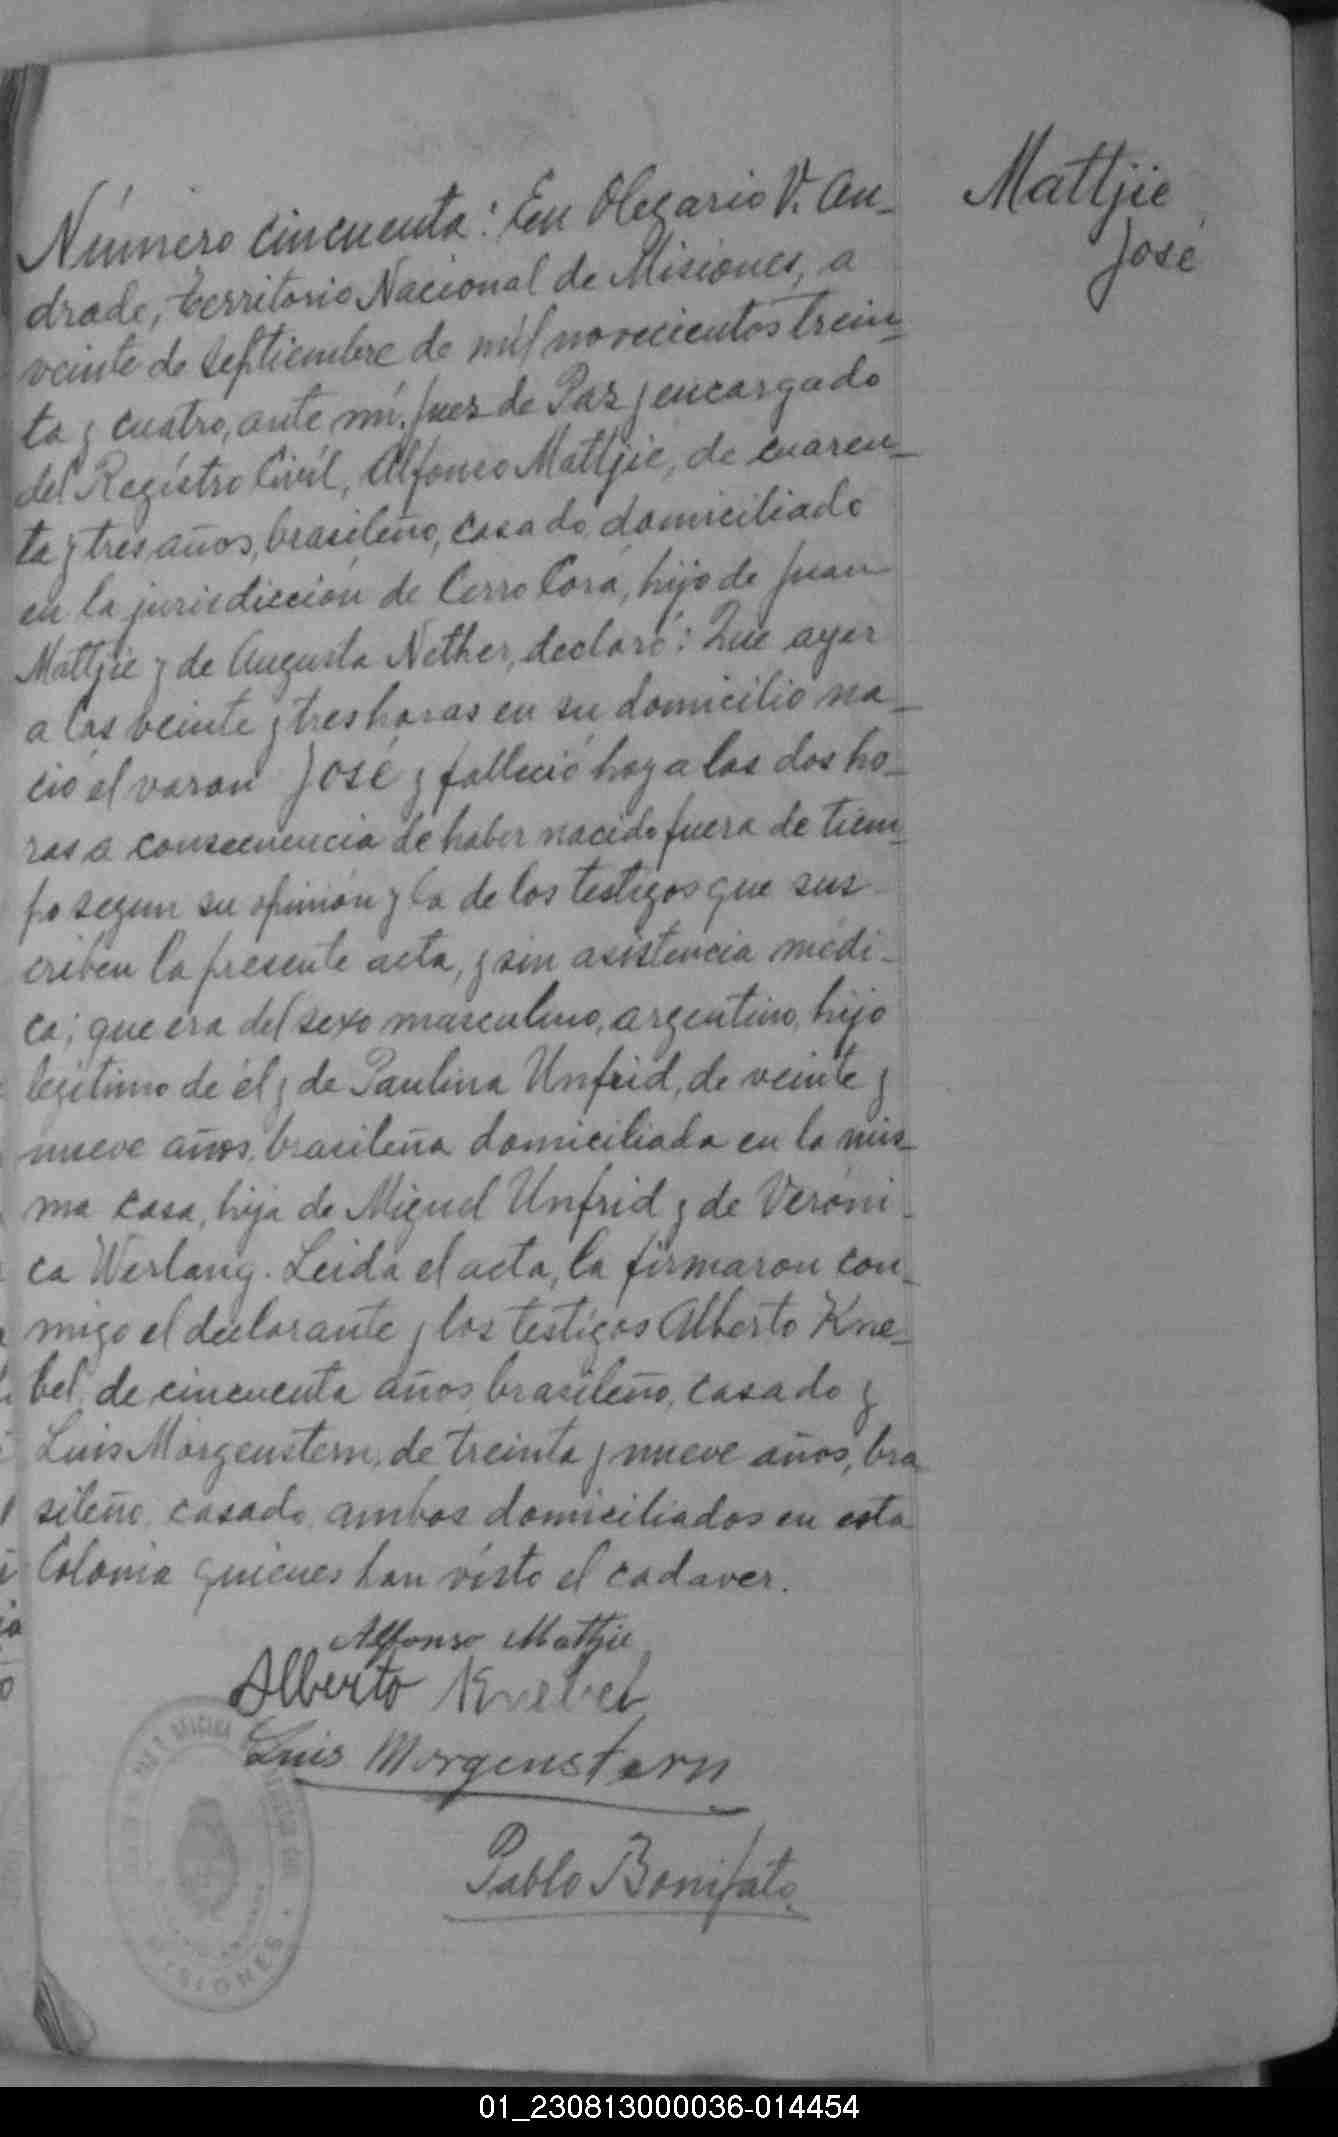 Mattjie
José
Número cincuenta: En Olegario V. An-
drade, territorio Nacional de Misiones, a
veinte de Septiembre de mil novecientos trein-
ta y cuatro, ante mí, Juez de Paz y encargado
del Registro Civil, Alfonso Mattjie, de cuaren-
ta y tres años, brasileño, casado, domiciliado
en la jurisdicción de Cerro Corá, hijo de Juan
Mattjie y de Augusta Nether, declaró: Que ayer
a las veinte y tres horas en su domicilio na-
ció el varon José y falleció hoy a las dos ho-
ras a consecuencia de haber nacido fuera de tiem-
po segun su opinión y la de los testigos que sus-
criben la presente acta, y sin asistencia médi-
ca; que era del sexo masculino, argentino, hijo
legítimo de él y de Paulina Unfrid, de veinte y
nueve años, brasileña domiciliada en la mis-
ma casa, hija de Miguel Unfrid y de Veróni-
ca Werlang. Leida el acta, la firmaron con-
migo el declarante y los testigos Alberto Kne-
bel, de cincuenta años, brasileño, casado y
Luis Morgenstern, de treinta y nueve años, bra
sileño, casado, ambos domiciliados en esta
Colonia quienes han visto el cadaver.
Alfonso Mattjie
Alberto Knebel
Luis Morgenstern
Pablo Bonifato
OFICINA
MISIONES
01_230813000036-014454